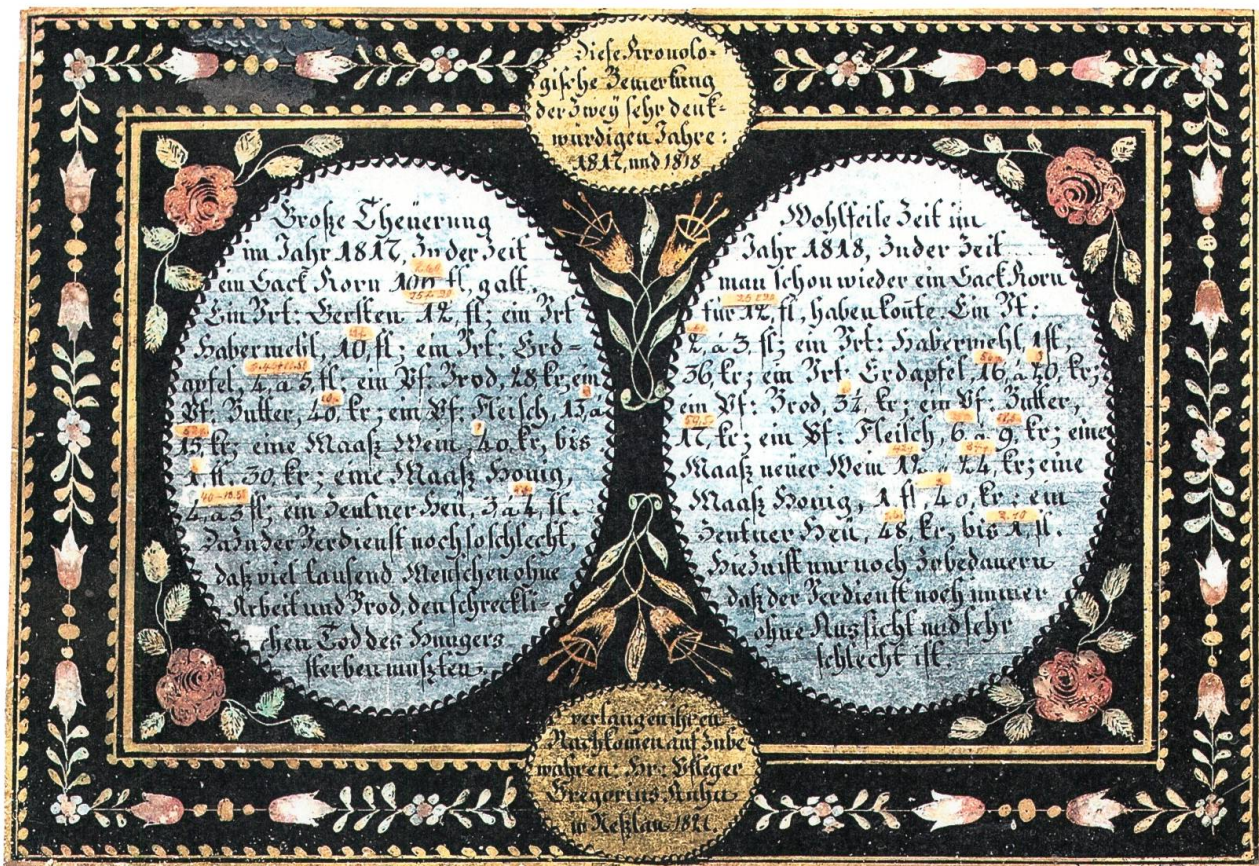 Diese Kronolo-
gische Bemerkung
der Zweÿ sehr denk-
würdigen Jahre:
1817, und 1818
Große Theüerung
im Jahr 1817, In der Zeit
ein Sack Korn 100 fl, galt.
Ein Vrt: Gersten 12, fl; ein Vrt
Habermehl, 10, fl; ein Vrt: Erd=
apfel, 4, a 5, fl; ein Pf: Brod, 28, kr; ein
Pf: Butter, 40, kr; ein Pf: Fleisch, 13, a
15 kr; eine Maaß Wein, 40, kr, bis
1 fl, 30, kr; eine Maaß Honig,
4, a 5 fl; ein Zentner Heü, 3 a 4, fl.
Da Zu der Verdienst noch so schlecht,
daß viel tausend Menschen ohne
Arbeit und Brod, den schreckli-
chen Tod des Hungers
sterben mußten.
Wohlfeile Zeit im
Jahr 1818, In der Zeit
man schon wieder ein Sack Korn
für 12, fl, haben konte: Ein Vt:
2, a 3, fl; ein Vrt: Habermehl, 1 fl,
36, kr; ein Vrt: Erdapfel, 16, a 20, kr;
ein Pf: Brod, kr; ein Pf: Butter,
17, kr; ein Pf: Fleisch, 6, a 9, kr; eine
Maaß neüer Wein 12, a 24, kr; eine
Maaß Honig, 1 fl, 40, kr; ein
Zentner Heü, 48, kr, bis 1, fl.
Hie Zu ist nur noch Zubedauern
daß der Verdienst noch immer
ohne Aussicht und sehr
schlecht ist.
verlangen ihren
Nachkomen auf Zube
wahren: Hr: Pfleger
Gregorius
in Neßlau 1821.